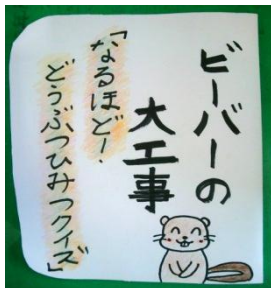 ビーバーの
大工事
「なるほどー！
どうぶつひみつクイズ」